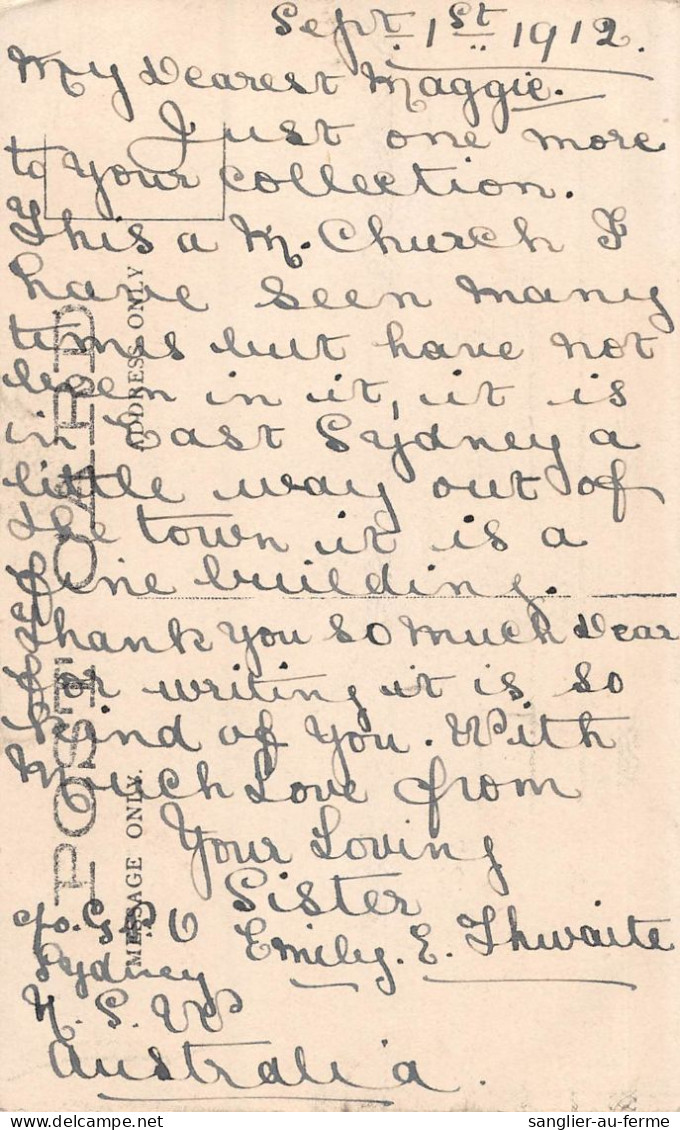 Sept. 1st 1912.
My Dearest Maggie.
Just one more
to your collection.
This a M. Church I
have seen many
times but have not
been in it, it is
in East Sydney a
little way out of
the town it is a
fine building.
Thank you so much Dear
for writing it is so
kind of you. With
Much Love from
Your Loving
Sister
Emily. E. Thwaite
c/o. G.P.O
Sydney
N. S. W
Australia.
POST CARD
MESSAGE ONLY.
ADDRESS ONLY
sanglier-au-ferme